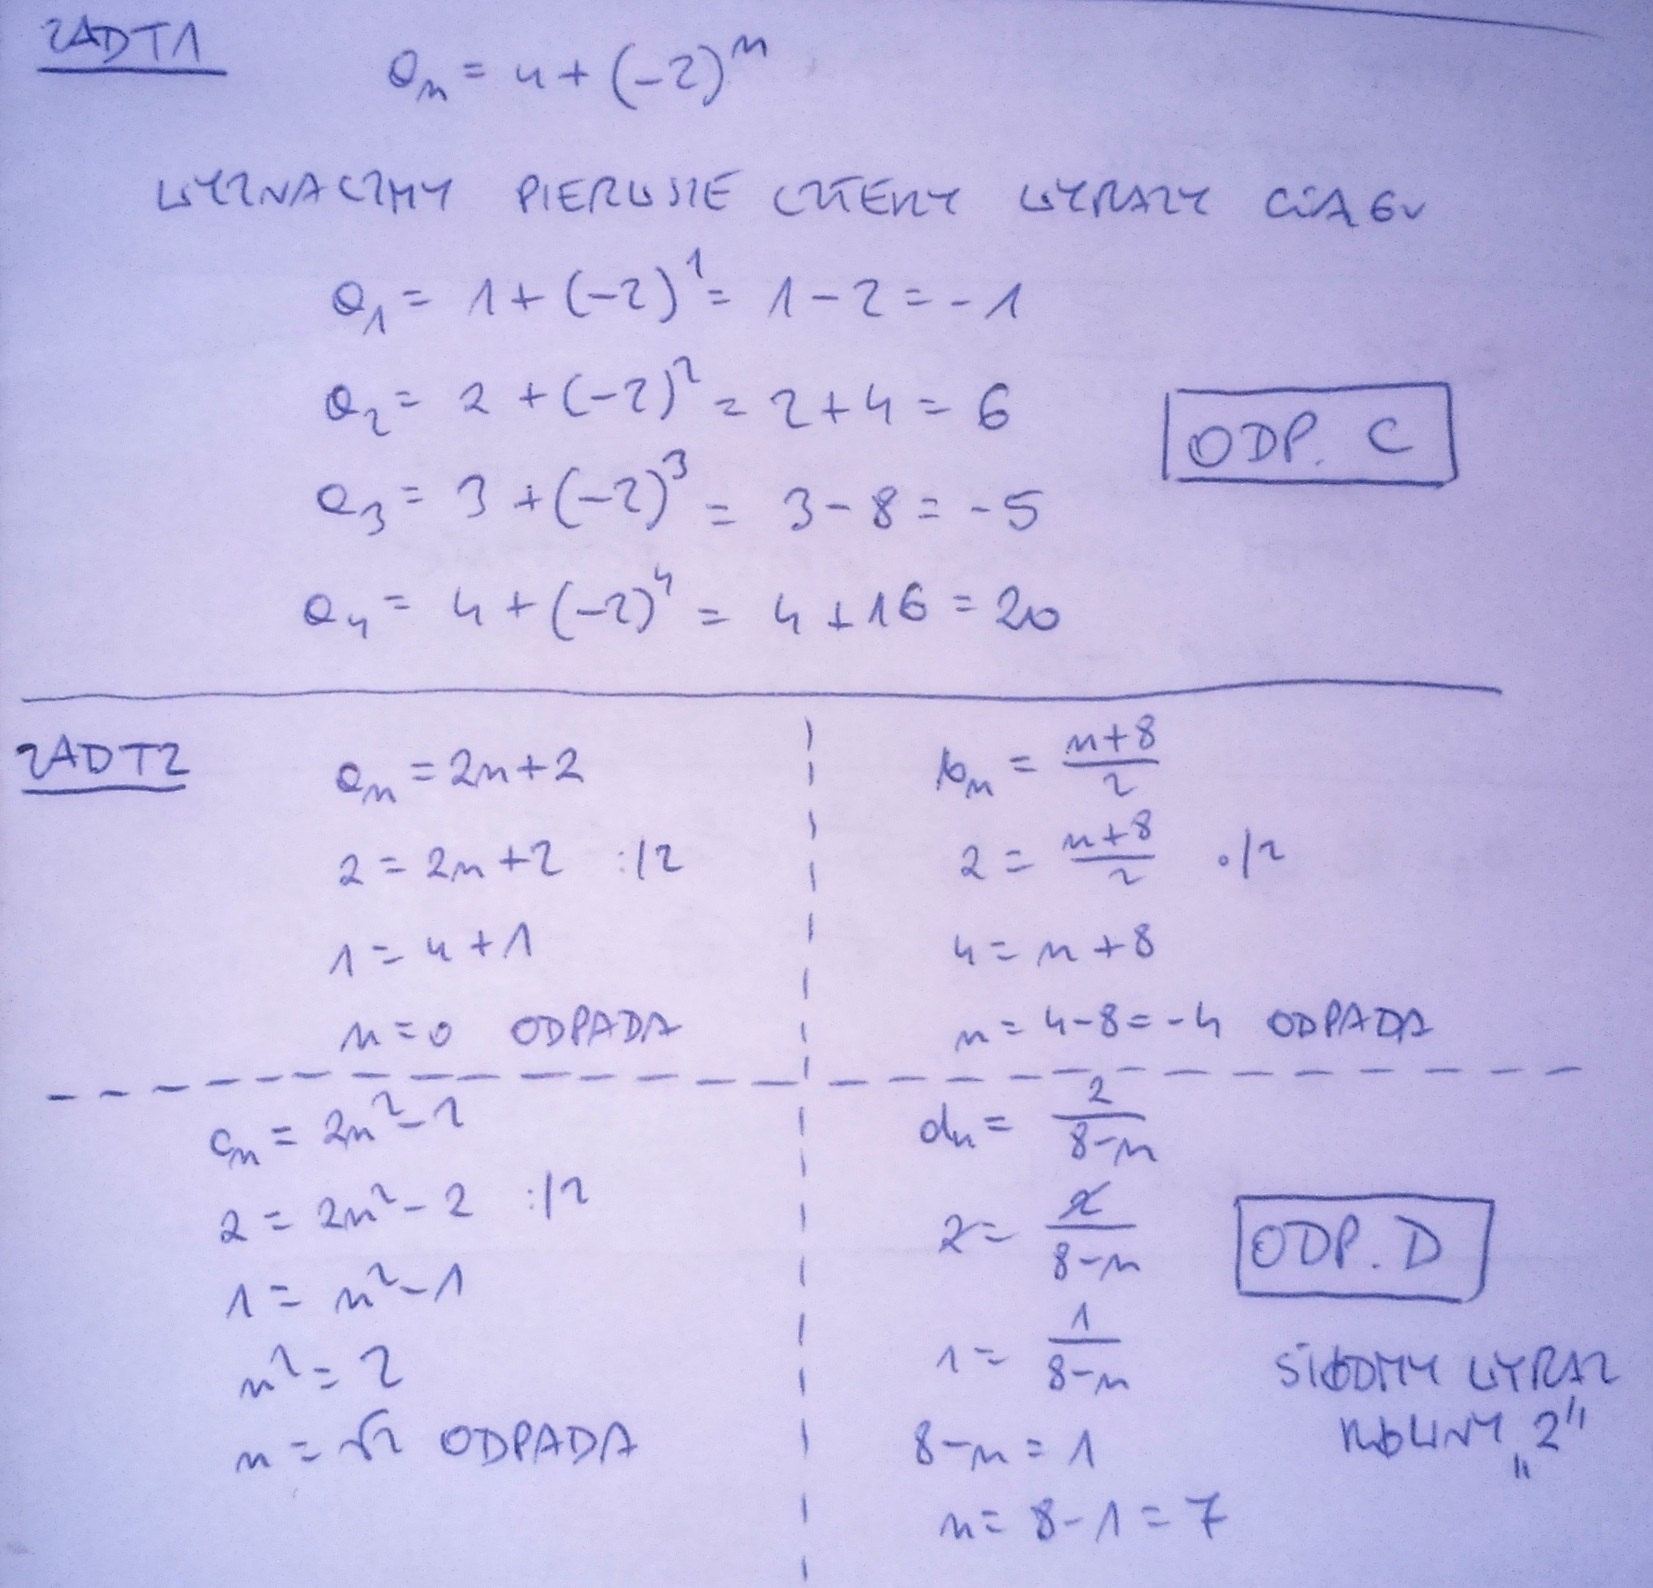 ZADT1
a_n = n + (-2)^n
WYZNACZMY PIERWSZE CZTERY WYRAZY CIĄGU
a_1 = 1 + (-2)^1 = 1 - 2 = -1
a_2 = 2 + (-2)^2 = 2 + 4 = 6
a_3 = 3 + (-2)^3 = 3 - 8 = -5
a_4 = 4 + (-2)^4 = 4 + 16 = 20
ODP. C
ZADT2
a_n = 2n + 2
2 = 2n + 2 :/2
1 = n + 1
n = 0 ODPADA
b_n = (n+8)/2
2 = (n+8)/2 ·/2
4 = n + 8
n = 4 - 8 = -4 ODPADA
c_n = 2n^2 - 2
2 = 2n^2 - 2 :/2
1 = n^2 - 1
n^2 = 2
n = √2 ODPADA
d_n = 2/(8-n)
2 = 2/(8-n)
1 = 1/(8-n)
8 - n = 1
n = 8 - 1 = 7
ODP. D
SIÓDMY WYRAZ
RÓWNY „2"